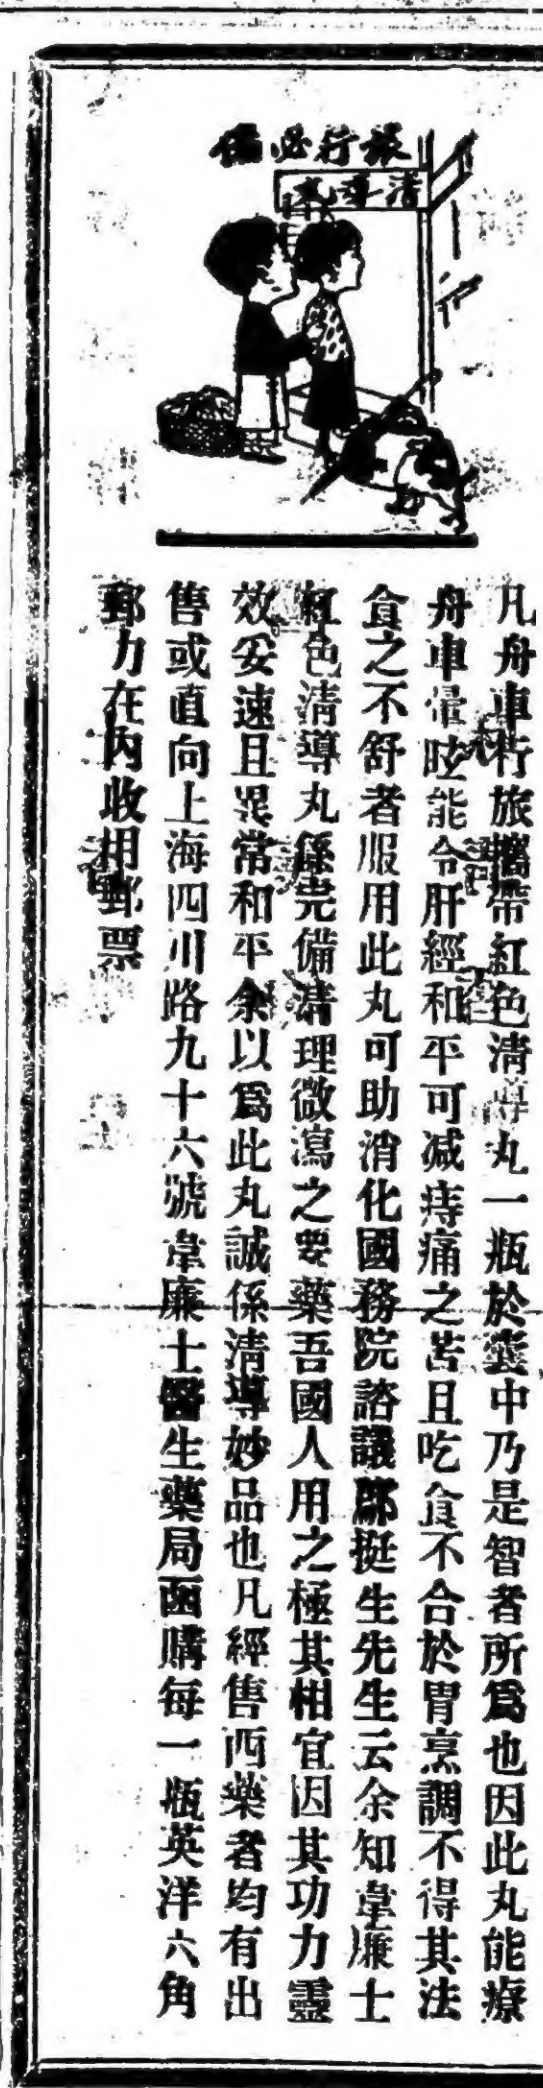 旅行必備
清導丸
凡舟車行旅攜帶紅色清導丸一瓶於囊中乃是智者所爲也因此丸能療
舟車暈眩能令肝經和平可减痔痛之苦且吃食不合於胃烹調不得其法
食之不舒者服用此丸可助消化國務院諮議鄺挺生先生云余知韋廉士
紅色清導丸係完備清理微瀉之要藥吾國人用之極其相宜因其功力靈
效妥速且異常和平余以爲此丸誠係清導妙品也凡經售西藥者均有出
售或直向上海四川路九十六號韋廉士醫生藥局函購每一瓶英洋六角
郵力在內收用郵票